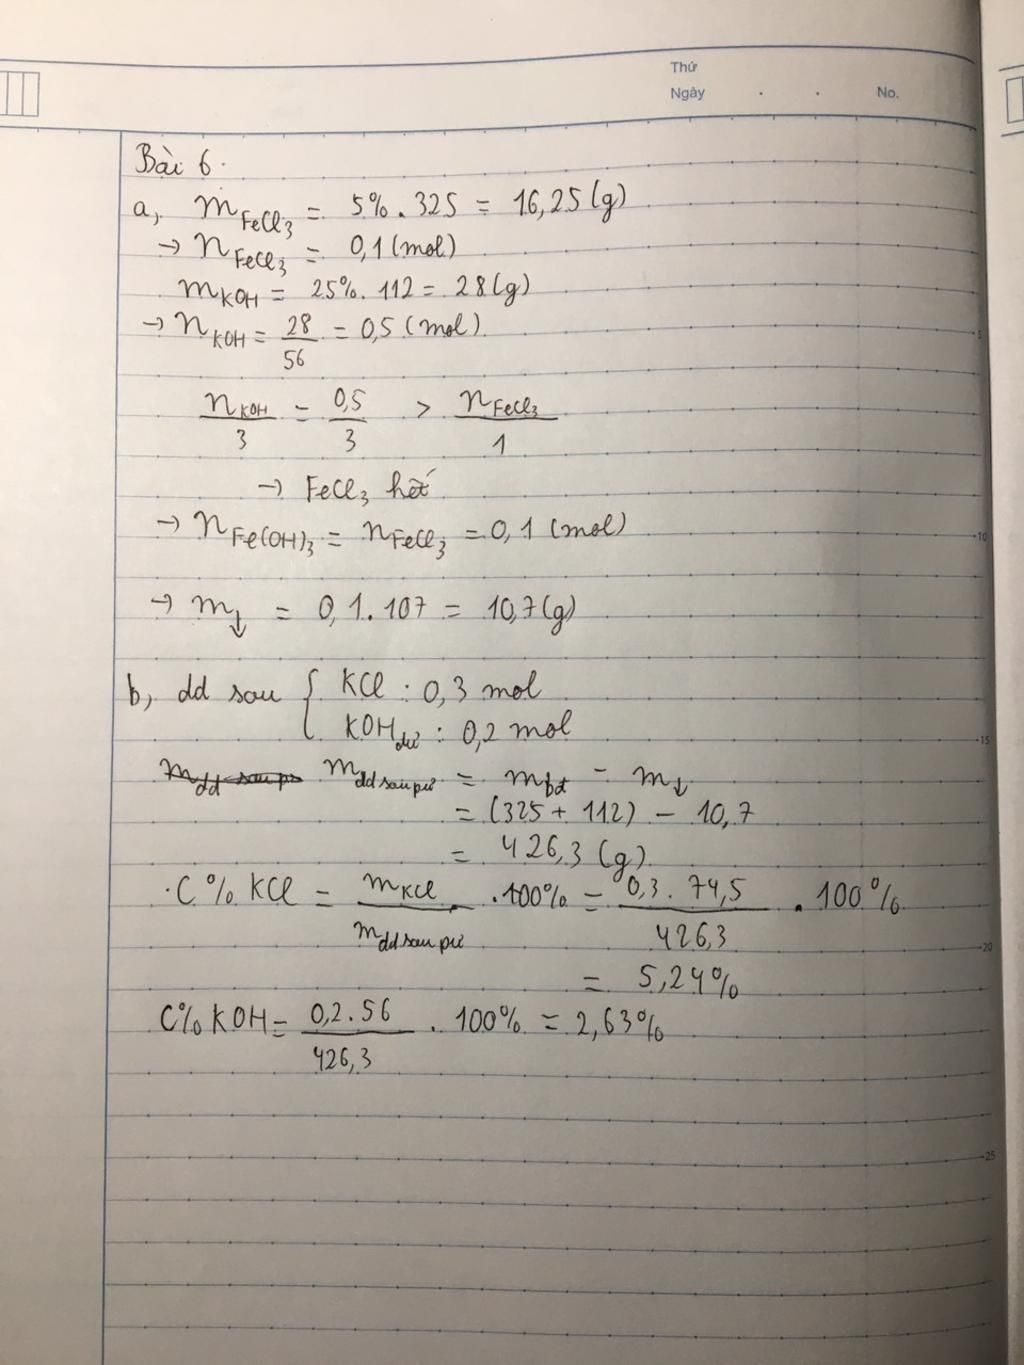 Thứ
Ngày . . No.
Bài 6.
a, m FeCl3 = 5% . 325 = 16,25 (g)
→ n FeCl3 = 0,1 (mol)
m KOH = 25% . 112 = 28 (g)
→ n KOH = 28/56 = 0,5 (mol)
n KOH/3 = 0,5/3 > n FeCl3/1
→ FeCl3 hết
→ n Fe(OH)3 = n FeCl3 = 0,1 (mol)
→ m↓ = 0,1 . 107 = 10,7 (g)
b, dd sau { KCl : 0,3 mol
KOH dư : 0,2 mol
m dd sau pư = m bđ - m↓
= (325 + 112) - 10,7
= 426,3 (g)
. C% KCl = m KCl/m dd sau pư . 100% = 0,3 . 74,5/426,3 . 100%
= 5,24%
C% KOH = 0,2 . 56/426,3 . 100% = 2,63%
5
10
15
20
25